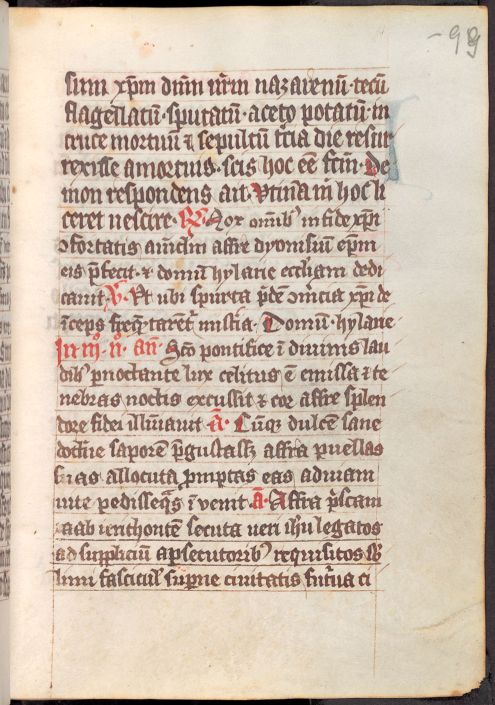 99
sum xp̄m dn̄m nr̄m nazarenū· tecū
flagellatū· sputatū· aceto potatū· in
cruce mortuū ⁊ sepultū t̄cia die resur
rexisse a mortuis· scis hoc eē fc̄m· De
mon respondens ait· Vtina m̄ hoc li
ceret nescire· R̄· Nox om̄ib⁹ in fide xp̄i
ꝯfortatis afre dyonisiū ep̄m
eis p̄fecit· ⁊ domū hylarie eccl̄iam dedi
cauit· V̄· Vt ubi spurca p̄de xp̄i de
īceps freq̄ntaret᷒ Domū· hylarie
In· iij· n̄· an̄· Sc̄o pontifice ī diuinis lau
dib⁹ p̄noctante lux celitus ē emissa ⁊ te
nebras noctis excussit ⁊ cor affre splen
dore fidei illūinauit A̅· Cūq̨ dulcem sane
doctr̄ie saporē p̄gustass̄ affra puellas
suas allocuta p̄mptas eas ad uiam
uite pedisseq̄s īuenit A̅· Affra p̄scam
raab ierichontē secuta ueri ih̄u legatos
ad suppliciū a p̄secutorib⁹ requisitos sb̄
lini fascicul᷒ sup̄ne ciuitatis fut᷒ra ci